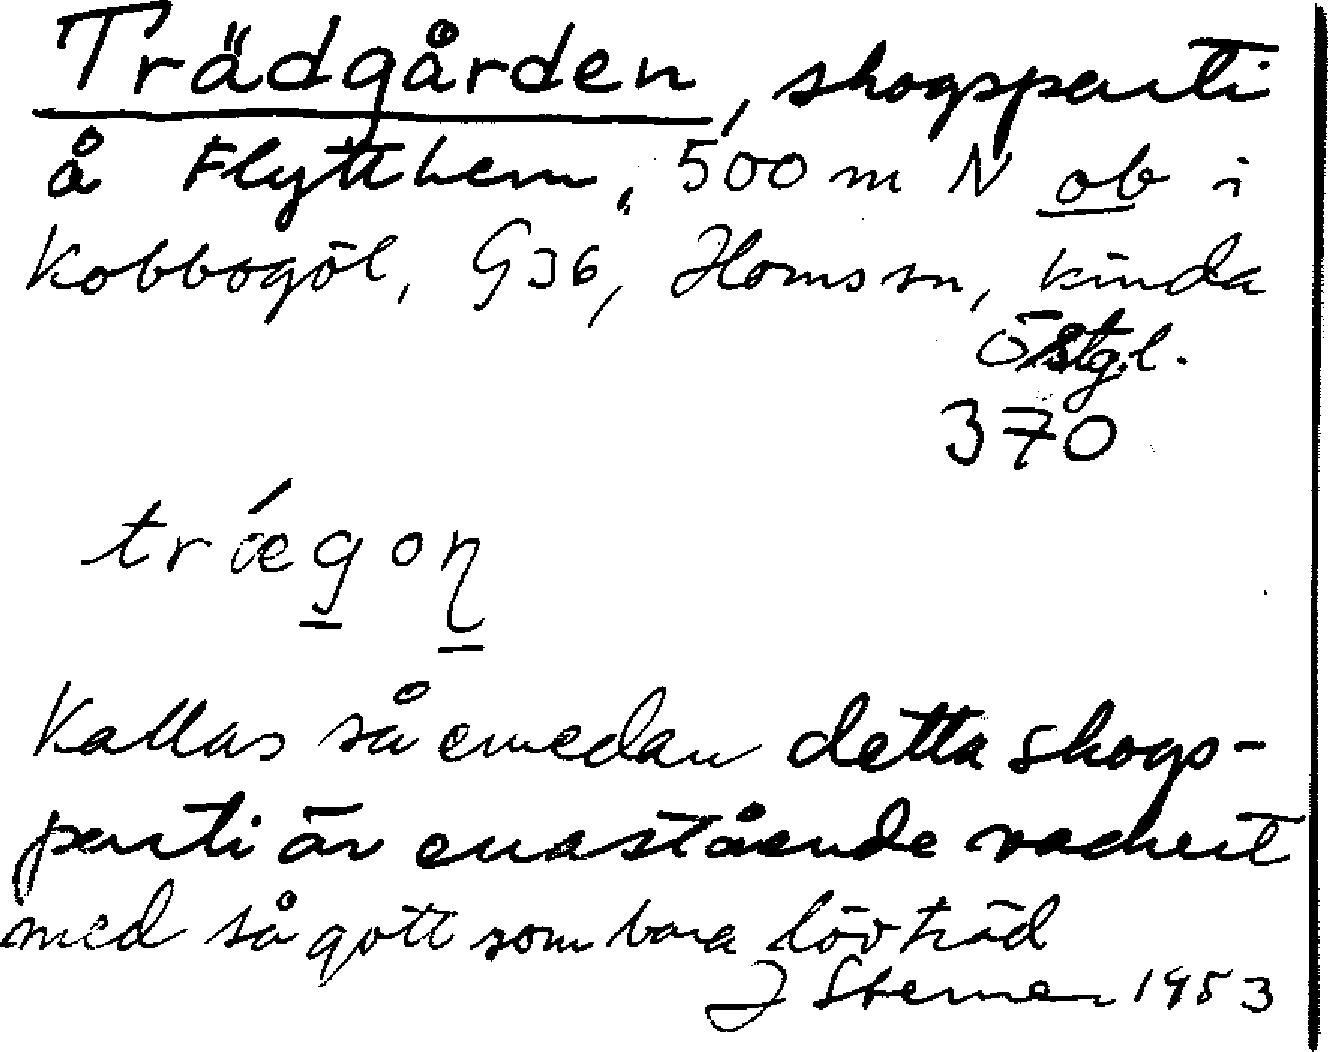 Trädgården, skogsparti
å Flytthem, 500 m N ob i
Kobbogöl, G36, Hornsn, Kinda
Östgl.
370
trǽgoη
Kallas så emedan detta skogs-
parti är enastående vackert
med så gott som bara lövträd
J Sterner 1953